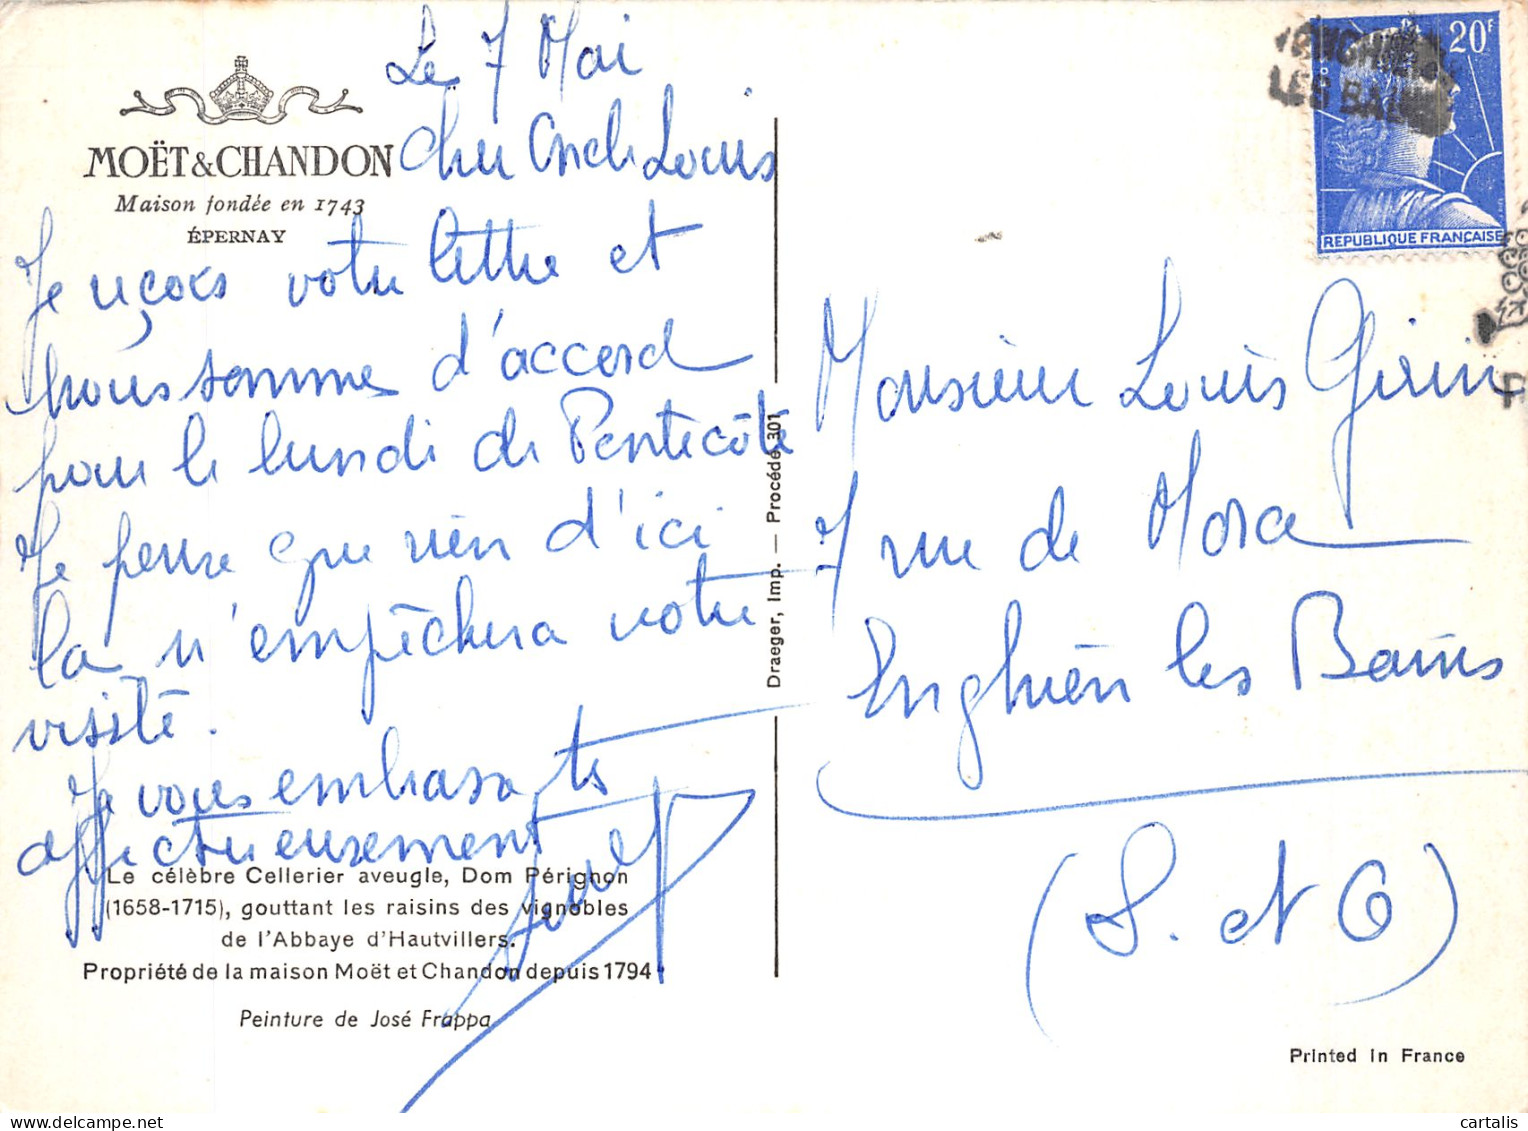 Le 7 Mai
MOËT & CHANDON
Maison fondée en 1743
ÉPERNAY
Cher Oncle Louis
Je reçois votre lettre et
nous somme d'accord
pour le lundi de Pentecôte
Je pense que rien d'ici
la n'empêchera votre
visite.
Je vous embrasse
affectueusement
Le célèbre Cellerier aveugle, Dom Pérignon
(1658-1715), gouttant les raisins des vignobles
de l'Abbaye d'Hautvillers.
Propriété de la maison Moët et Chandon depuis 1794
Peinture de José Frappa
Draeger, Imp. — Procédé 301
20F
REPUBLIQUE FRANÇAISE
LES BAINS
Monsieur Louis Girin
7 rue de
Enghien les Bains
(S. et O)
Printed in France
cartalis